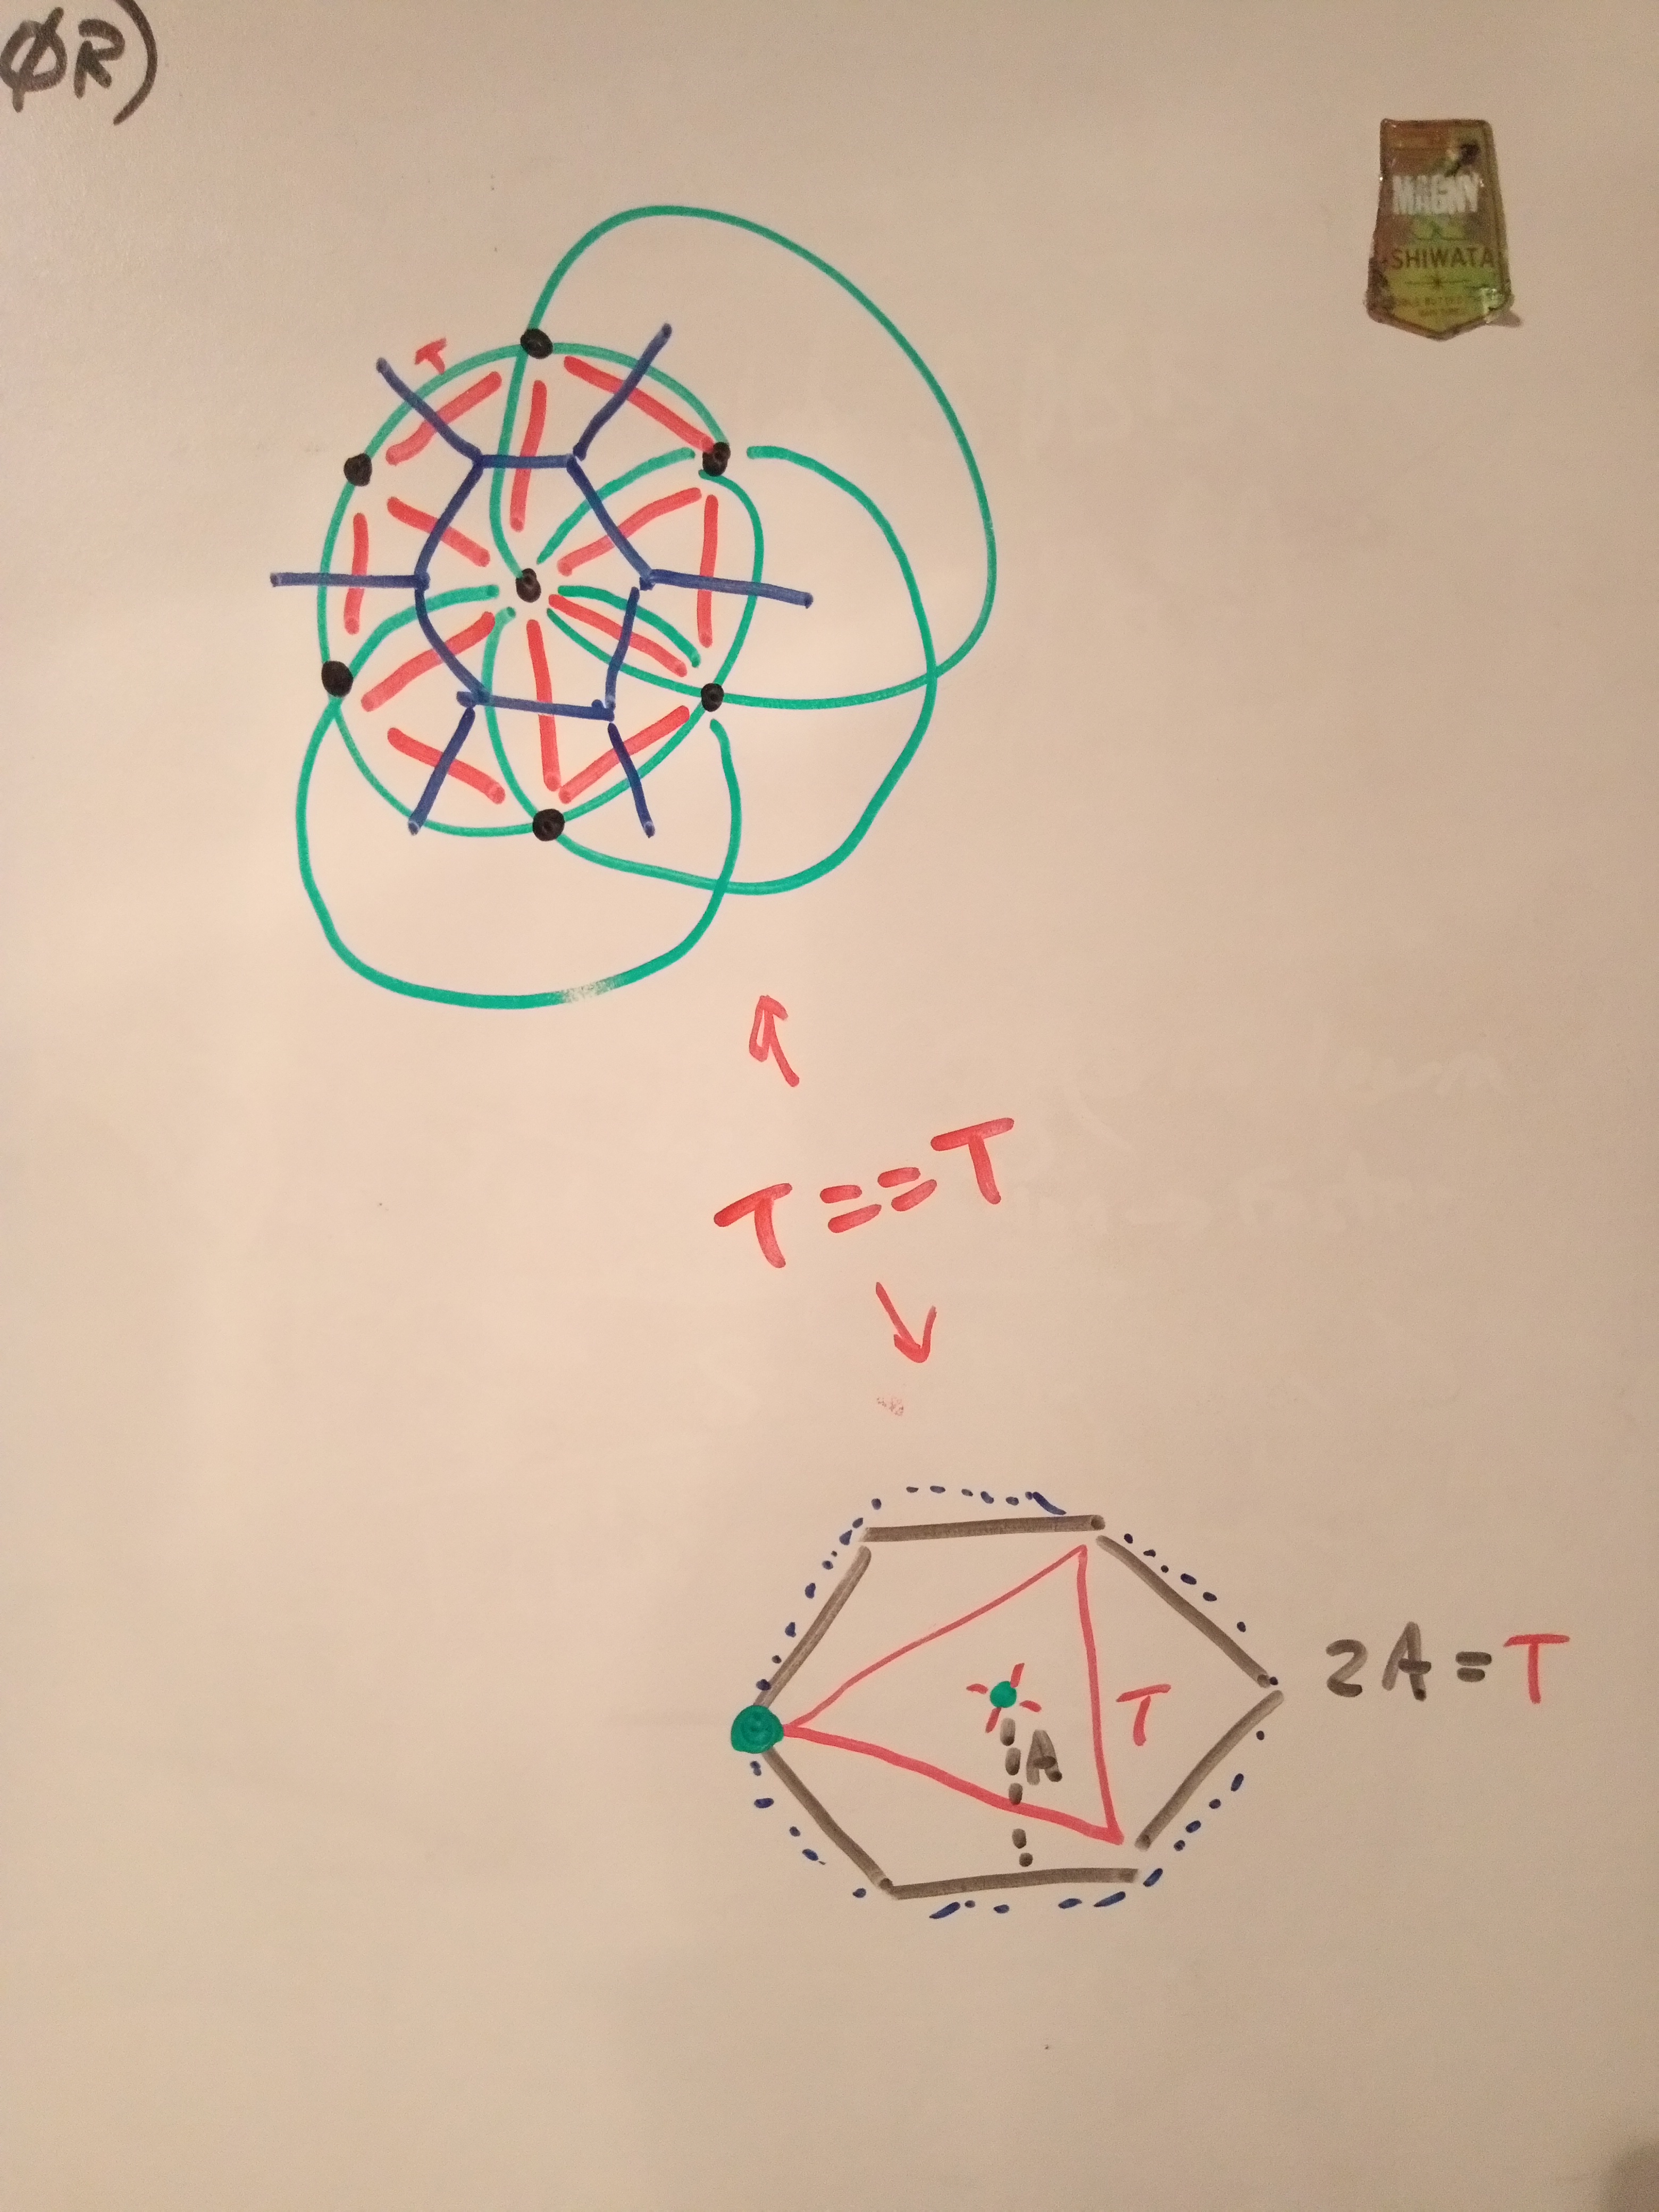 ØR)
MAGNY
SHIWATA
T
T == T
2A = T
T
A